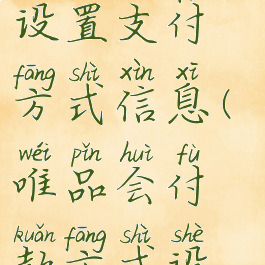 设置支付
fāng shì xìn xī
方式信息(
wéi pǐn huì fù
唯品会付
kuǎn fāng shì shè
款方式设